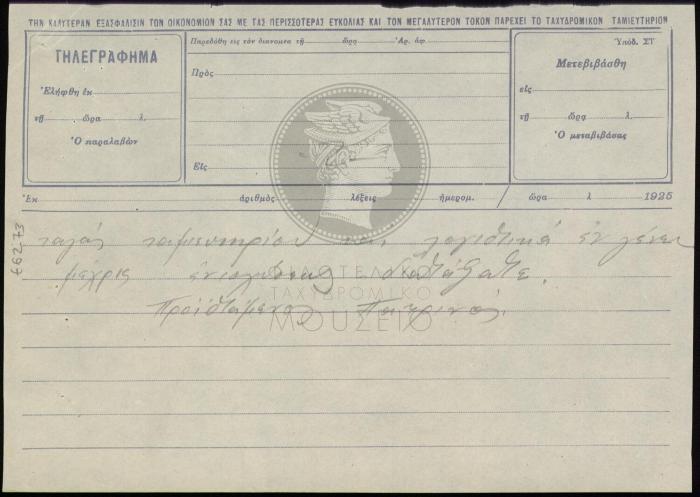 ΤΗΝ ΚΑΛΥΤΕΡΑΝ ΕΞΑΣΦΑΛΙΣΙΝ ΤΩΝ ΟΙΚΟΝΟΜΙΩΝ ΣΑΣ ΜΕ ΤΑΣ ΠΕΡΙΣΣΟΤΕΡΑΣ ΕΥΚΟΛΙΑΣ ΚΑΙ ΤΟΝ ΜΕΓΑΛΥΤΕΡΟΝ ΤΟΚΟΝ ΠΑΡΕΧΕΙ ΤΟ ΤΑΧΥΔΡΟΜΙΚΟΝ ΤΑΜΙΕΥΤΗΡΙΟΝ
ΤΗΛΕΓΡΑΦΗΜΑ
Ἐλήφθη ἐκ
τῇ ὥρα λ.
Ὁ παραλαβών
Παρεδόθη εἰς τὸν διανομέα τῇ ὥρᾳ Ἀρ. ἀφ.
Πρὸς
Εἰς
Ὑπόδ. ΣΤ
Μετεβιβάσθη
εἰς
τῇ ὥρᾳ λ.
Ὁ μεταβιβάσας
Ἐκ ἀριθμὸς λέξεις ἡμερομ. / ὥρα λ 1925
66273
ταμιευτηρίου και λογιστικά εν γένει
μέχρις διατάξατε.
Προϊστάμενος Πατρινός.
ΤΑΧΥΔΡΟΜΙΚΟ
ΜΟΥΣΕΙΟ